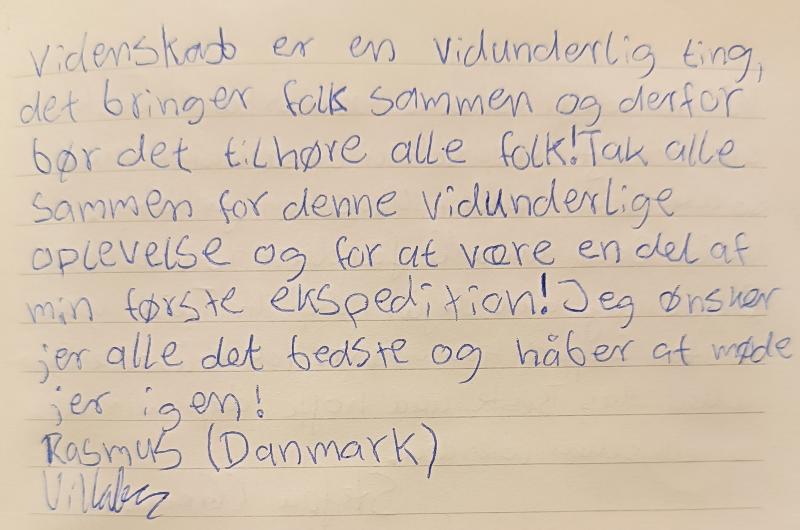 Videnskab er en vidunderlig ting,
det bringer folk sammen og derfor
bør det tilhøre alle folk! Tak alle
sammen for denne vidunderlige
oplevelse og for at være en del af
min første ekspedition! Jeg ønsker
jer alle det bedste og håber at møde
jer igen!
Rasmus (Danmark)